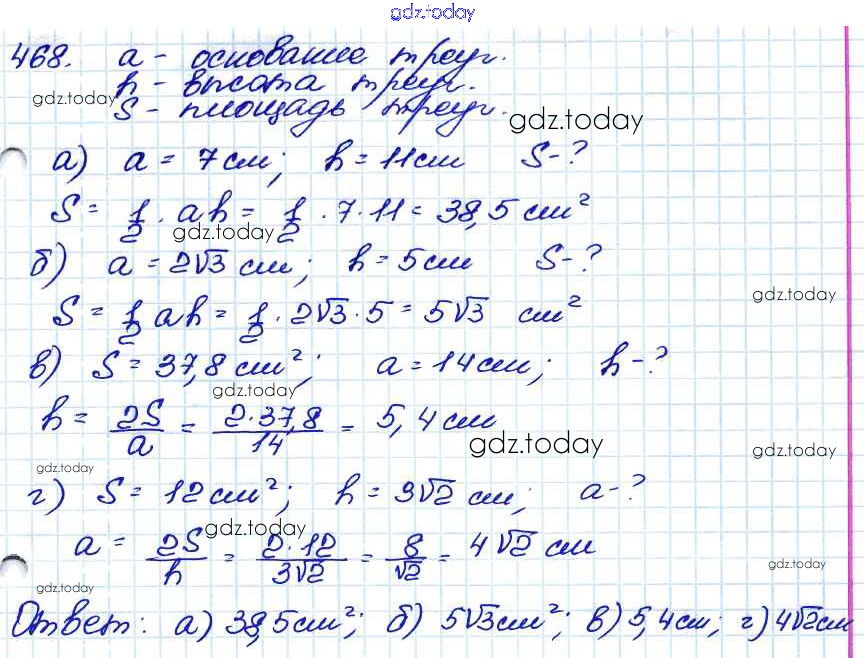 gdz.today
468. a - основание треуг.
h - высота треуг.
gdz.today
S - площадь треуг.
gdz.today
а) a = 7 см; h = 11 см S - ?
S = 1/2 · ah = 1/2 · 7 · 11 = 38,5 см²
gdz.today
б) a = 2√3 см; h = 5 см S - ?
gdz.today
S = 1/2 ah = 1/2 · 2√3 · 5 = 5√3 см²
в) S = 37,8 см²; a = 14 см; h - ?
gdz.today
h = 2S/a = 2·37,8/14 = 5,4 см
gdz.today
gdz.today
gdz.today
г) S = 12 см²; h = 3√2 см; a - ?
gdz.today
a = 2S/h = 2·12/3√2 = 8/√2 = 4√2 см
gdz.today
gdz.today
Ответ: а) 38,5 см²; б) 5√3 см²; в) 5,4 см; г) 4√2 см